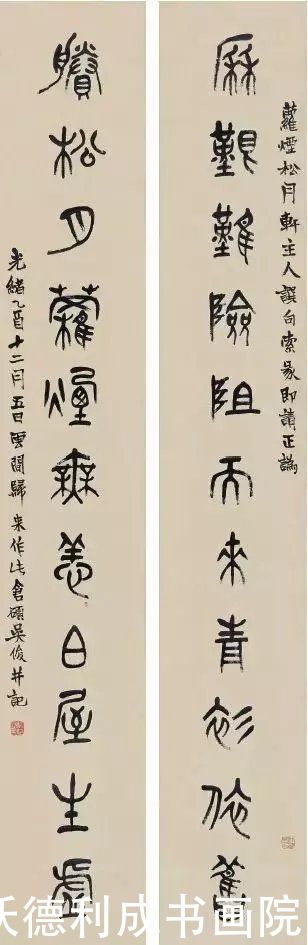 蘿煙松月軒主人譔句索篆即請正
厤艱難險阻而來青衫依舊
賸松月蘿煙無恙白屋生虛
光緒乙酉十二月五日雲間歸來作此倉碩吳俊并記
沃德利成书画院